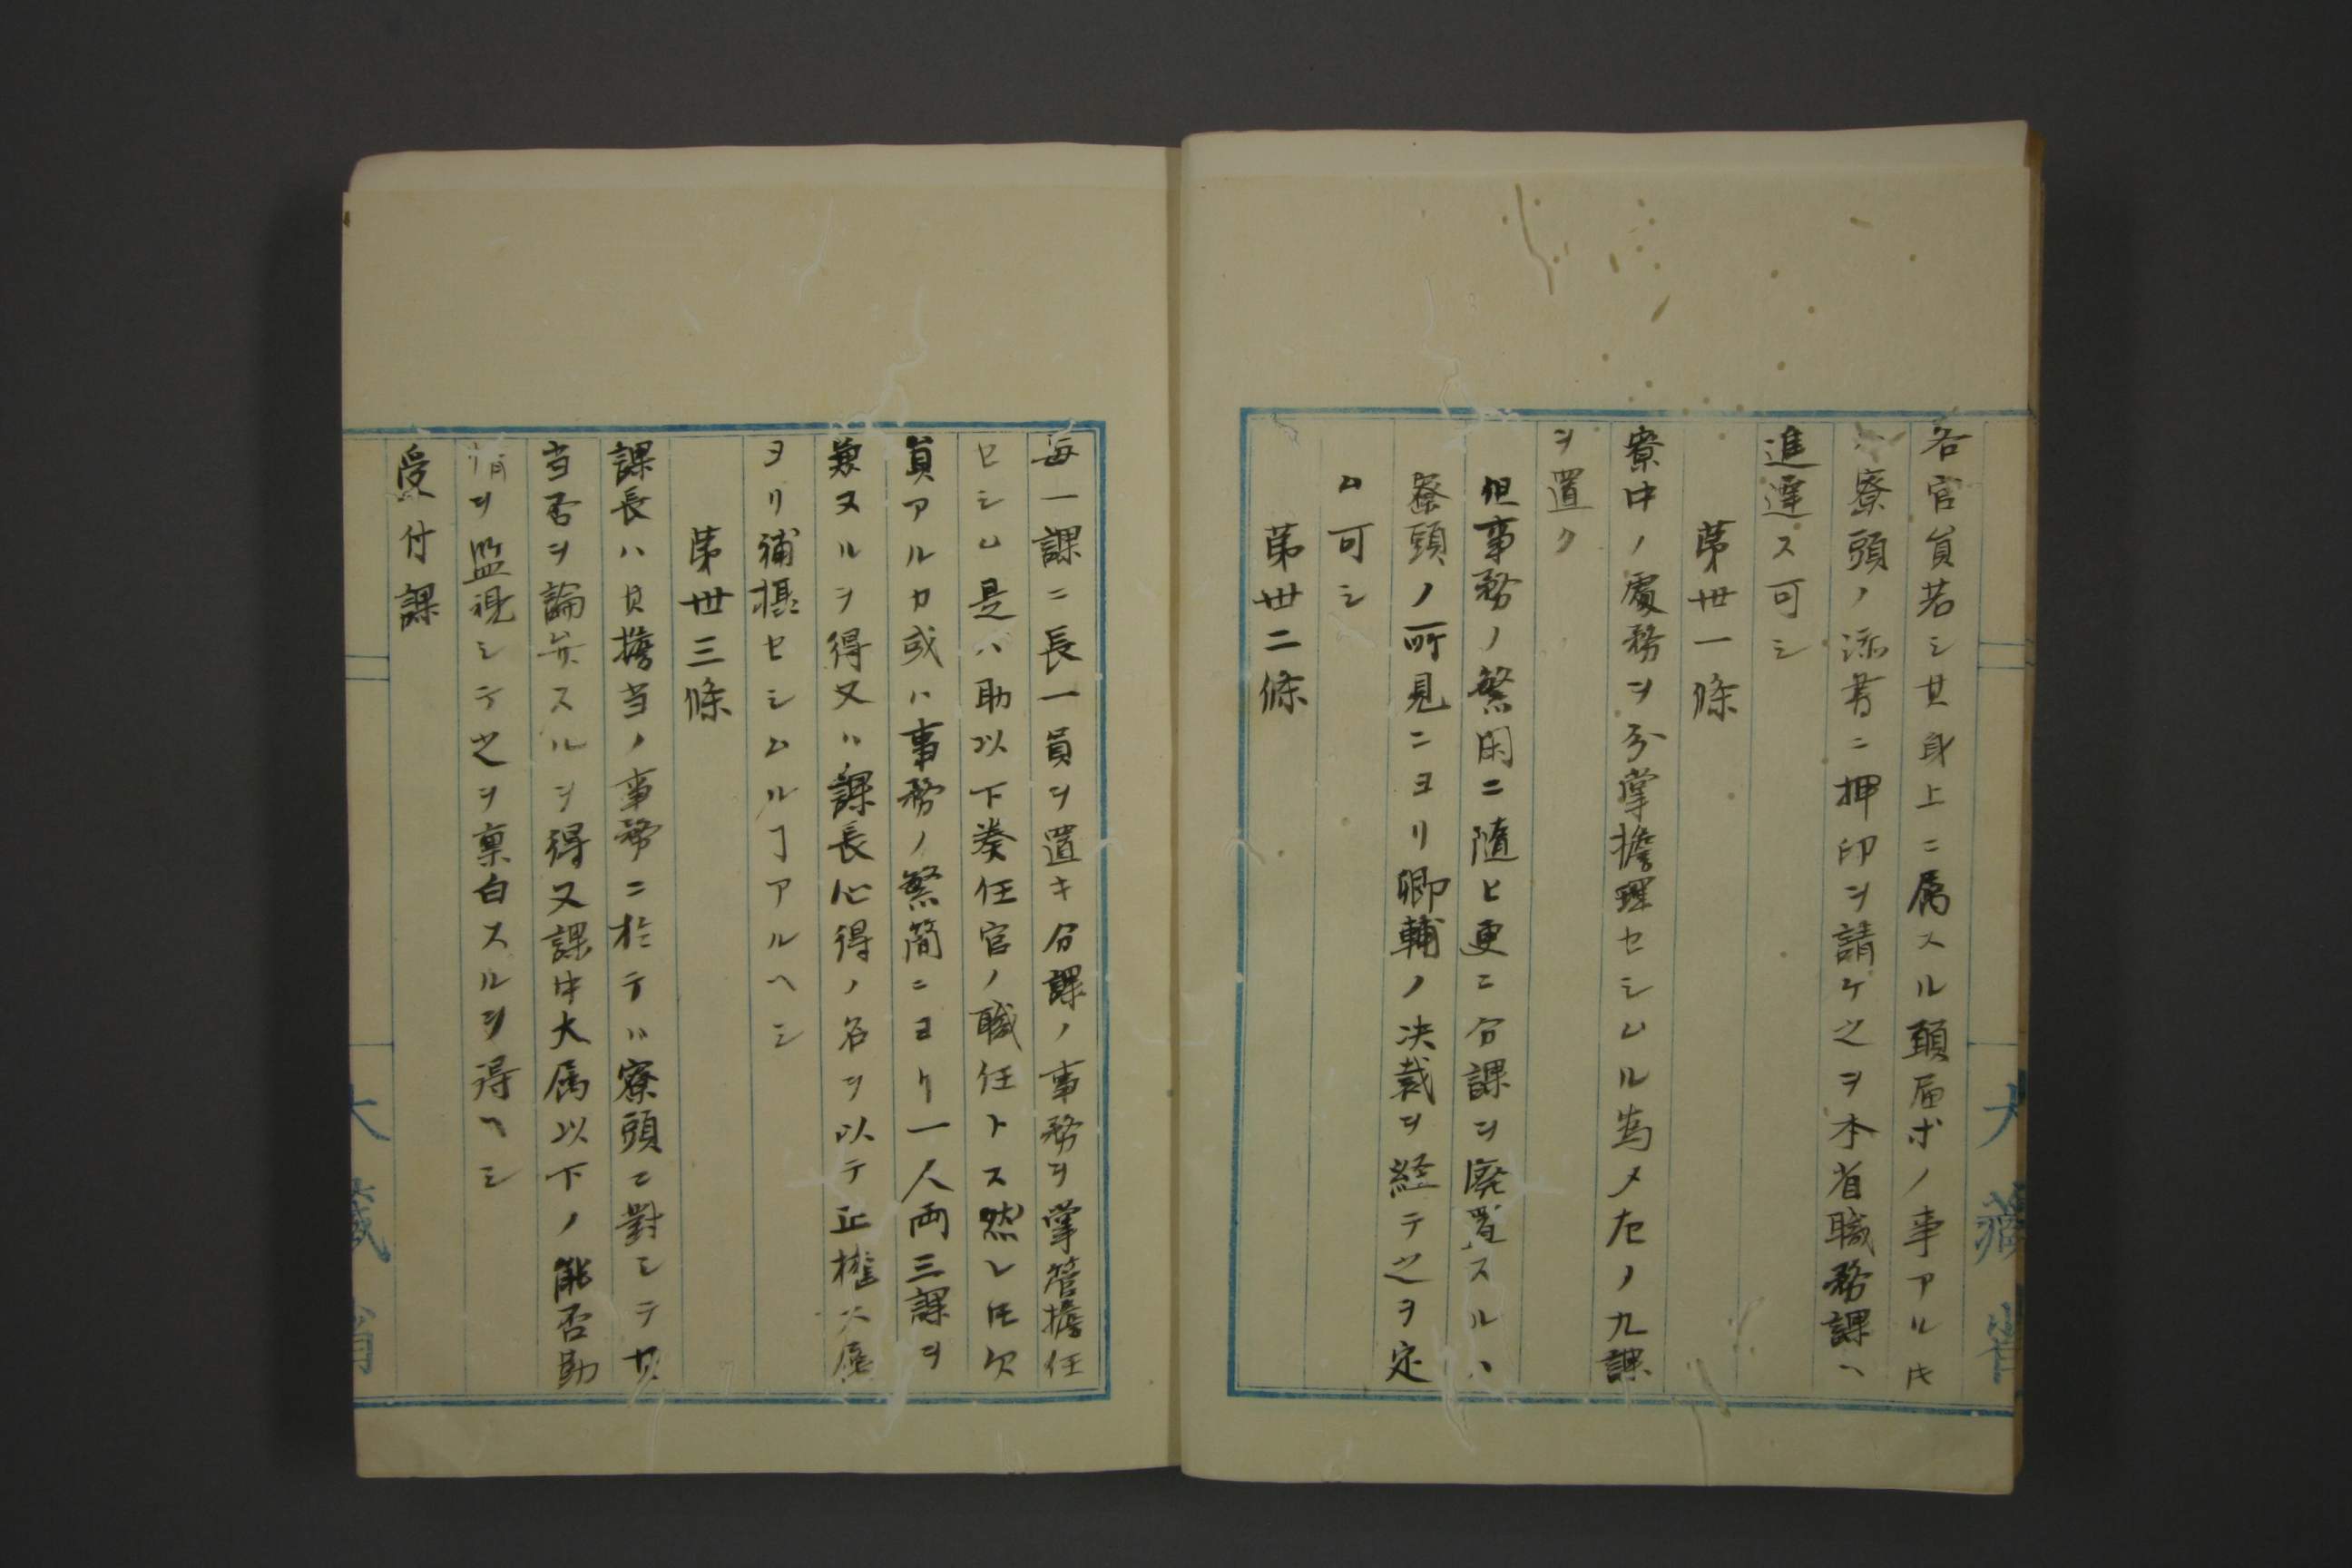 各官員若シ其身上ニ属スル願届ホノ事アルキ
ハ寮頭ノ添書ニ押印ヲ請ケ之ヲ本省職務課ヘ
進達ス可シ
第丗一條
寮中ノ處務ヲ分掌擔理セシムル為メ左ノ九課
ヲ置ク
但事務ノ繁閑ニ随ヒ更ニ分課ヲ廃置スルハ
寮頭ノ所見ニヨリ卿輔ノ决裁ヲ経テ之ヲ定
ム可シ
第丗二條
大藏省
毎一課ニ長一員ヲ置キ分課ノ事務ヲ掌管擔任
セシム是ハ助以下奏任官ノ職任トス然レ𪜈欠
員アルカ或ハ事務ノ繁簡ニヨリ一人両三課ヲ
兼ヌルヲ得又ハ課長心得ノ名ヲ以テ正権大属
ヨリ補摂セシムルヿアルヘシ
第丗三條
課長ハ其擔当ノ事務ニ於テハ寮頭ニ對シテ其
当否ヲ論弁スルヲ得又課中大属以下ノ能否勤
惰ヲ監視シテ之ヲ稟白スルヲ得ヘシ
受付課
大藏省